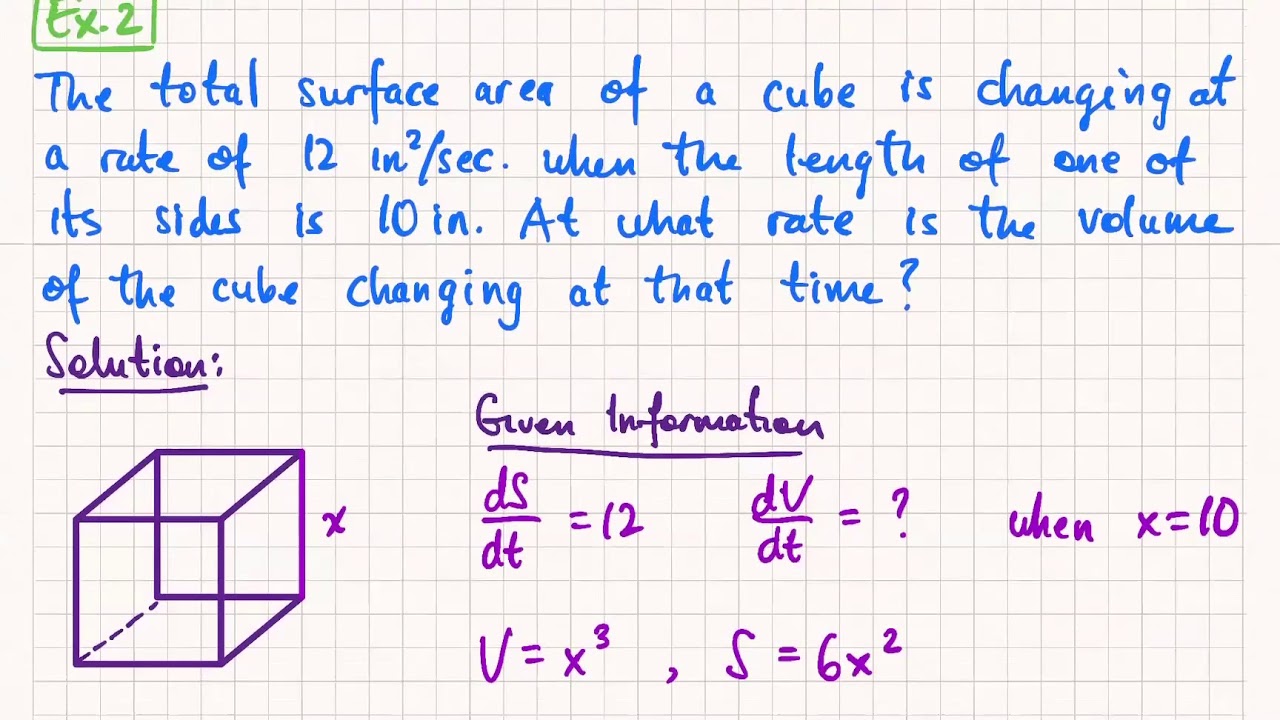 Ex. 2
The total surface area of a cube is changing at
a rate of 12 in²/sec. when the length of one of
its sides is 10 in. At what rate is the volume
of the cube changing at that time?
Solution:
Given Information
x
dS/dt = 12 dV/dt = ? when x = 10
V = x³ , S = 6x²